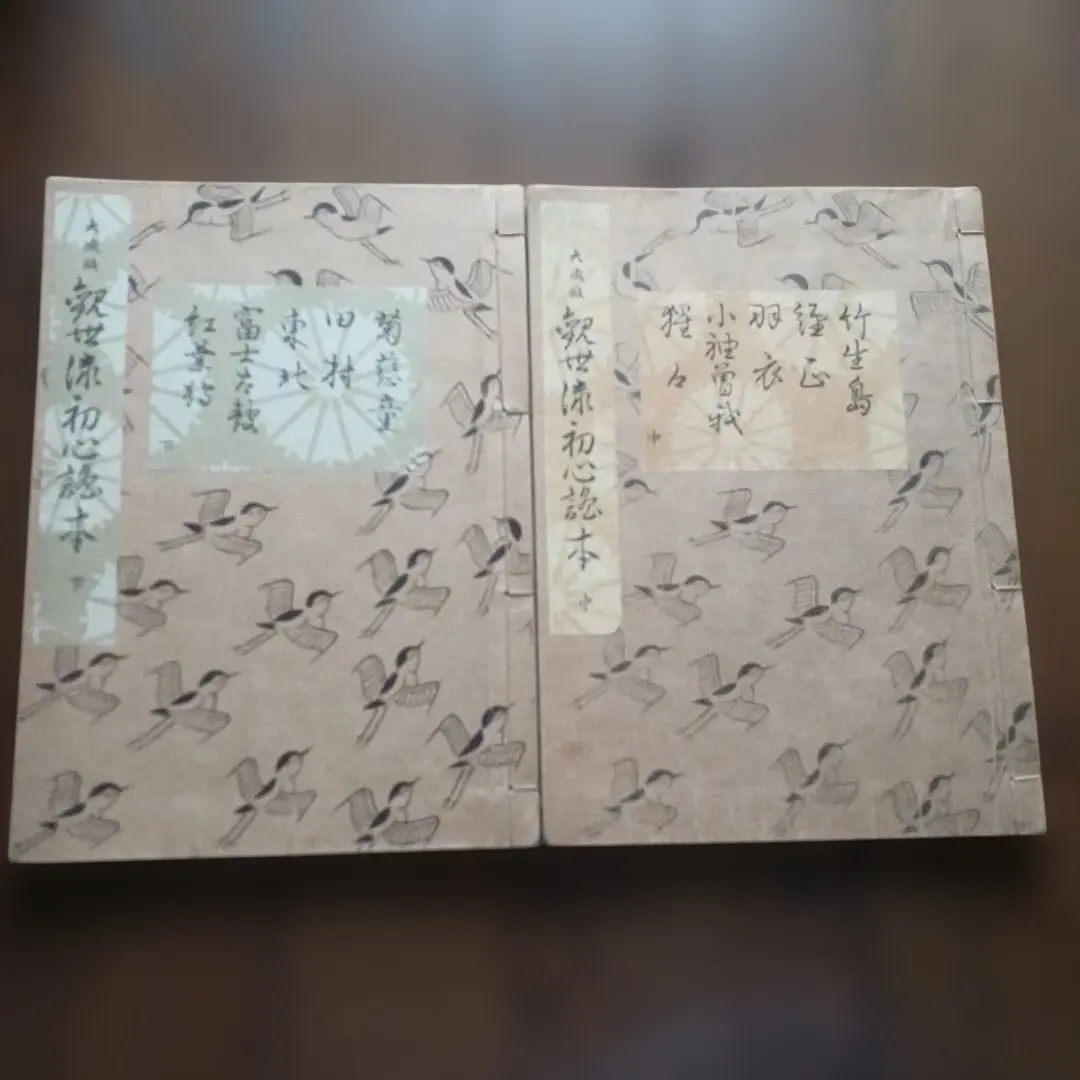 大成版
観世流初心謡本
下
菊慈童
田村
東北
富士太鼓
紅葉狩
下
大成版
観世流初心謡本
中
竹生島
経正
羽衣
小袖曽我
猩々
中